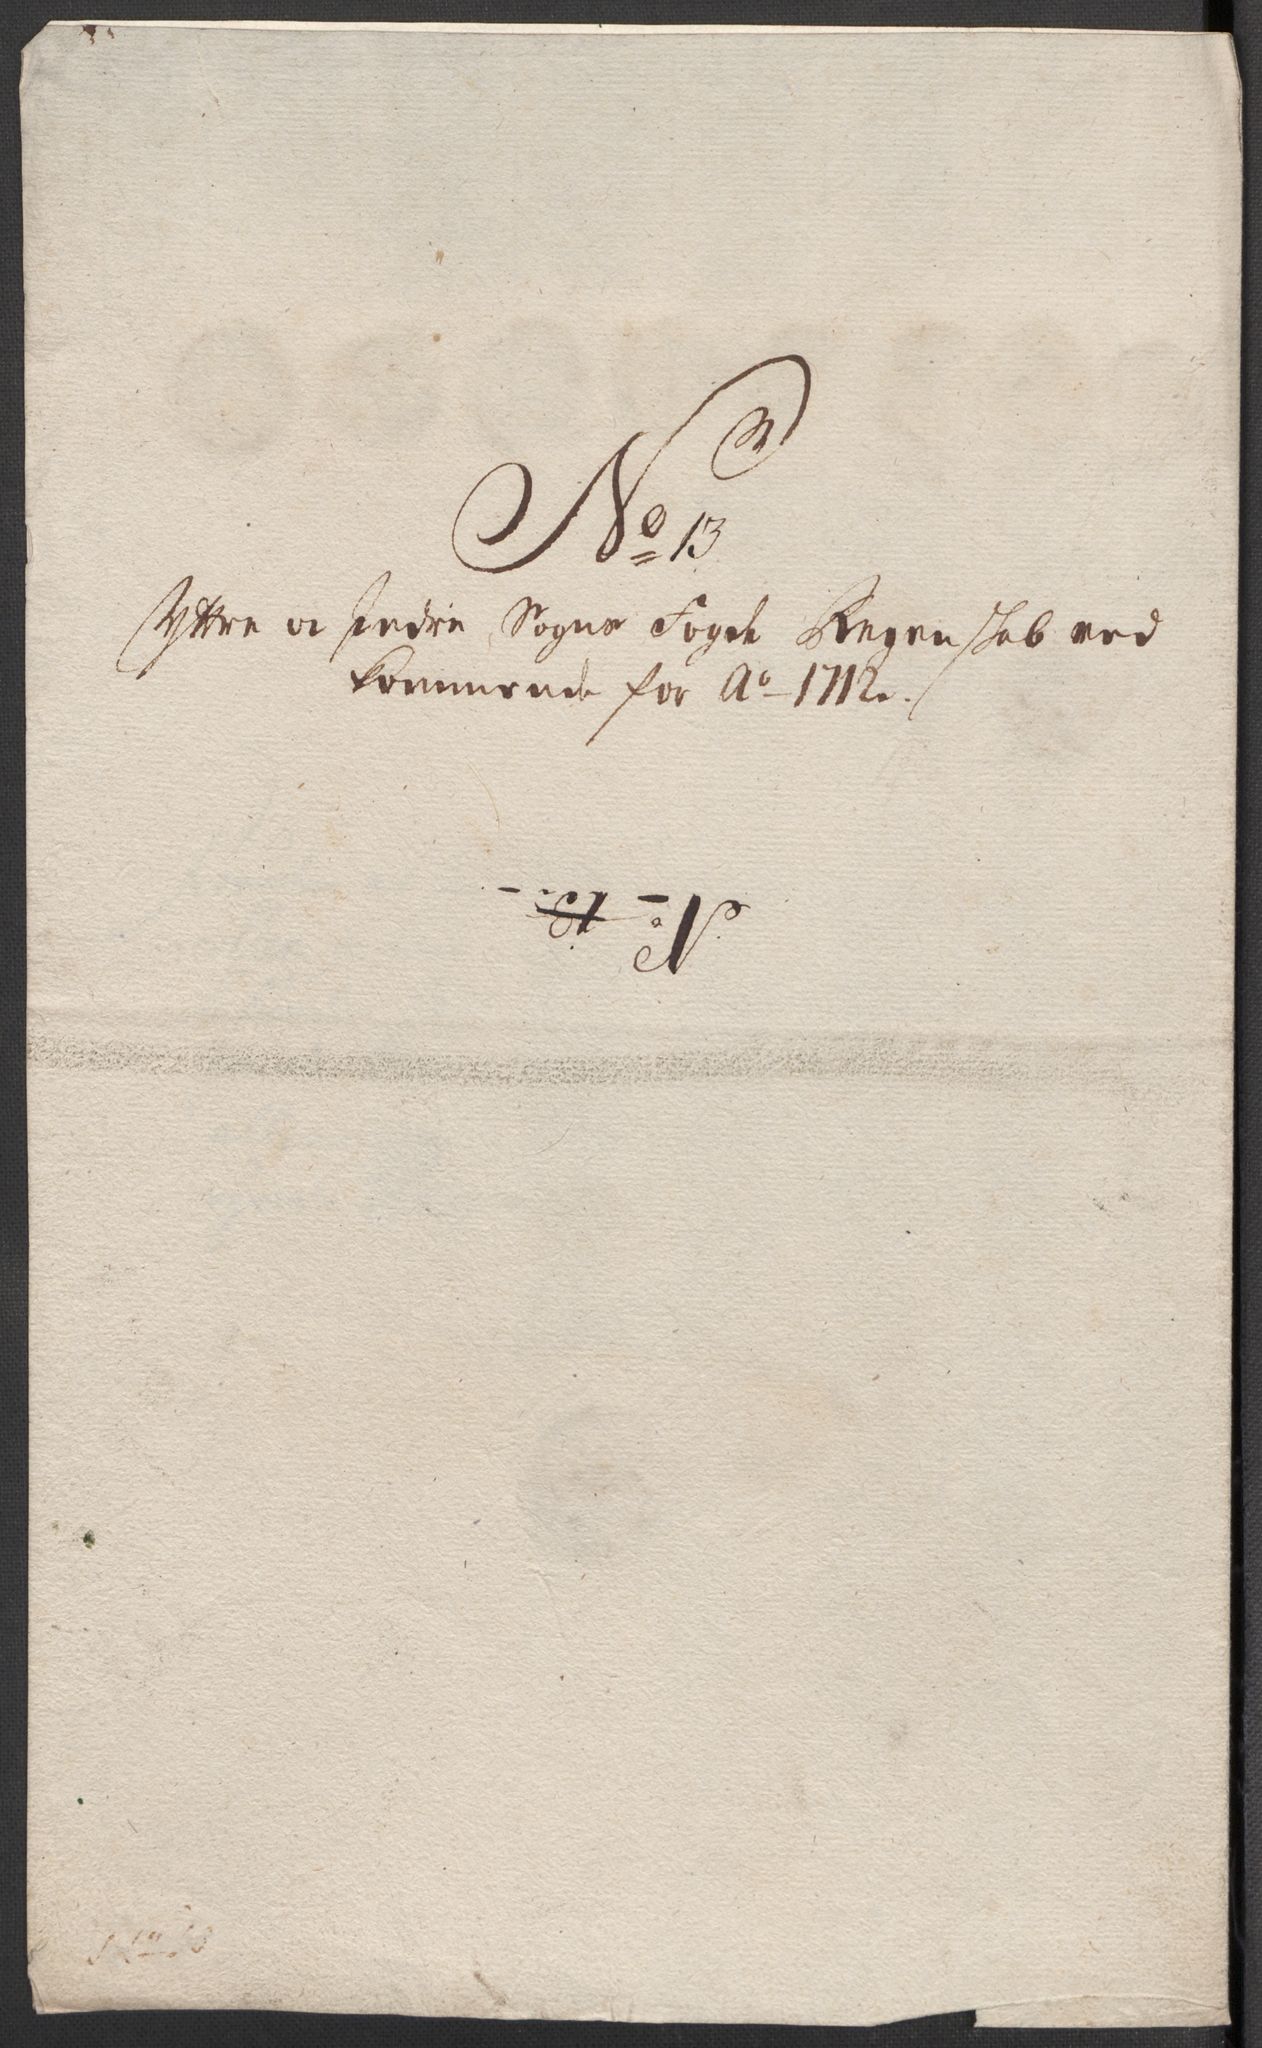 No 13
Yttre oc Indre Sogns Fogde Regenskab ved
kommende for Ao 1712.
No 13
No 13